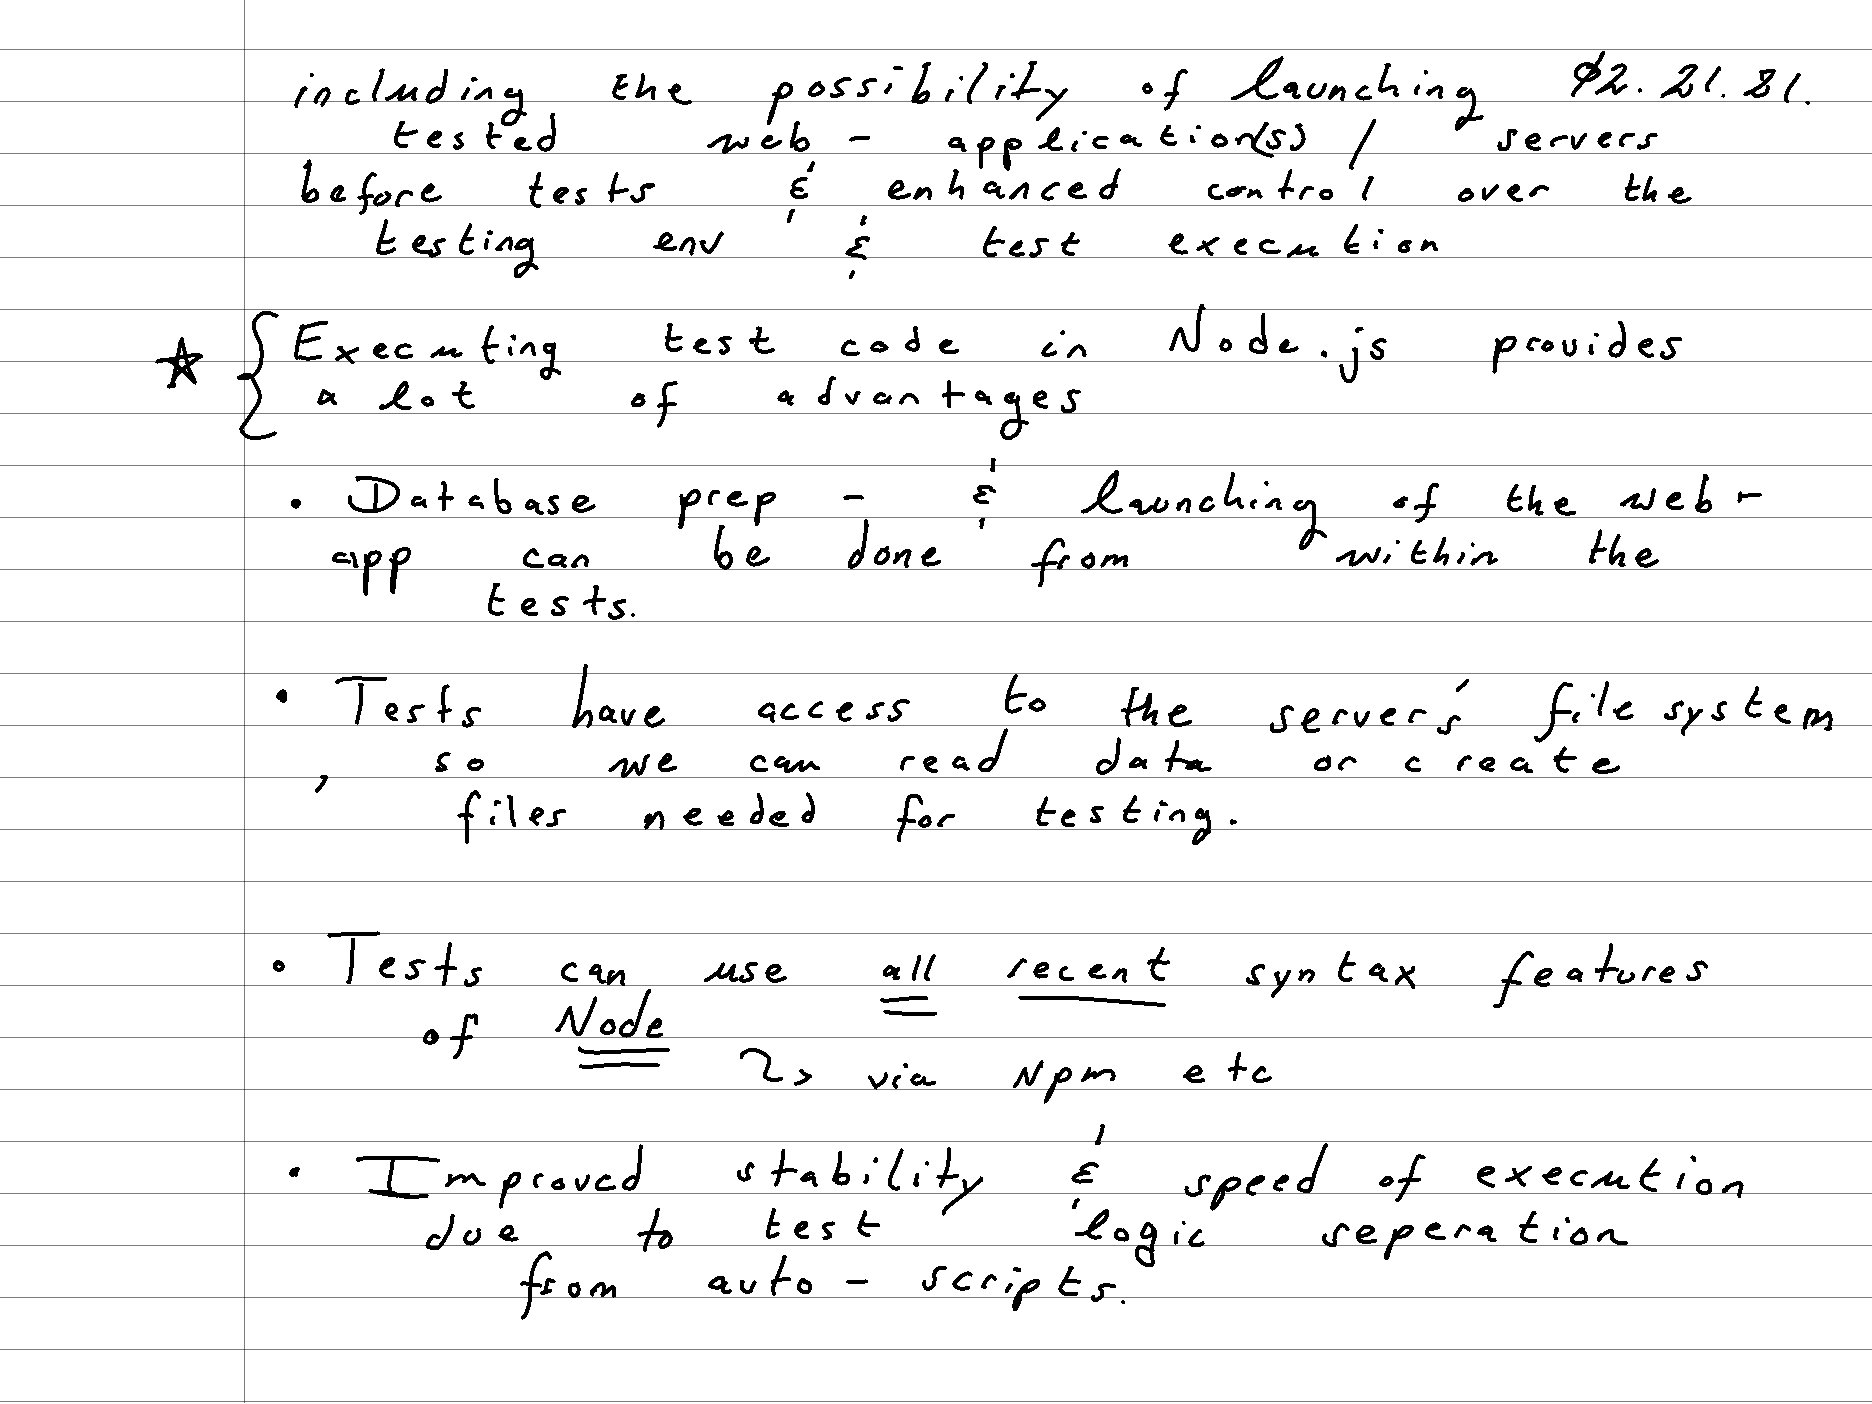 including the possibility of launching 02.21.21.
tested web - application(s) / servers
before tests & enhanced control over the
testing env & test execution
Executing test code in Node.js provides
a lot of advantages
• Database prep - & launching of the web-
app can be done from within the
tests.
• Tests have access to the server's file system
, so we can read data or create
files needed for testing.
• Tests can use all recent syntax features
of Node
via Npm etc
• Improved stability & speed of execution
due to test logic seperation
from auto - scripts.